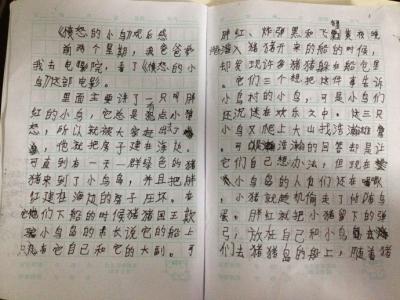 《愤怒的小鸟》观后感
前两个星期，我爸爸带
我去电影院，看了《愤怒的小
鸟》这部电影。
里面主要讲了一只叫胖
红的小鸟，它总是为点小事
愤怒，所以就被大家赶出了
岛，他就把房子建在海边。
可直到有一天一群绿色的猪
猪来到了小鸟岛，并且把胖
红建在海边的房子压坏。在
他们下船的时候猪猪国王就
小鸟岛的寿长说它的船上
只有它自己和它的大副。可
胖红、炸弹黑和飞镖黄夜晚
潜入猪猪开来的船的时候，
却发现许多猪猪躲在船仓里
。它们三个想把这件事告诉
小鸟村的小鸟，可是小鸟们
还沉浸在欢乐之中。这三只
小鸟又爬上大山找浩瀚雄
。可浩瀚的回答却是让
它们自己想办法，但现在
小鸟岛的人质们还在
，他就趁机偷走了付随鸟
蛋。胖红就把小猪留下的弹
弓，放在自己和小鸟
们去猪猪岛的船上，随着猪